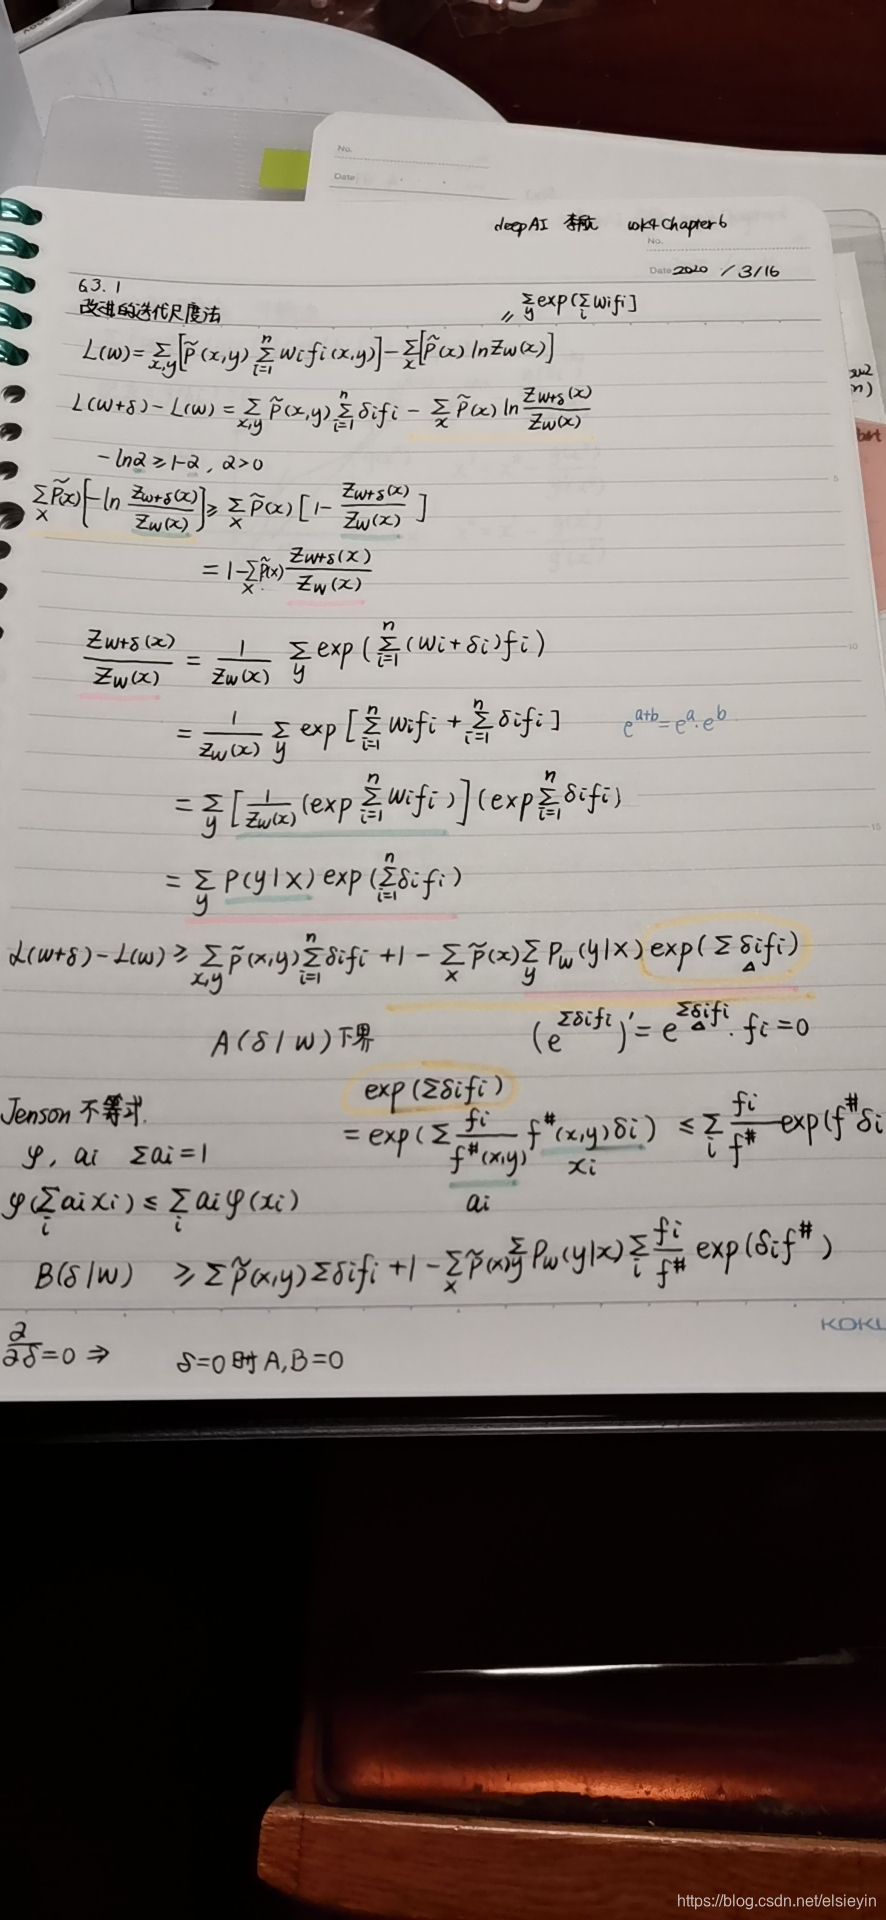 No.
Date
deepAI 李航 wk4 Chapter 6
No.
Date 2020 / 3/16
6.3.1
改进的迭代尺度法
〃 Σ_y exp(Σ_i wifi]
L(w) = Σ_{x,y}[P̃(x,y) Σ_{i=1}^n wifi(x,y)] - Σ_x[P̃(x) ln Zw(x)]
L(w+δ) - L(w) = Σ_{x,y} P̃(x,y) Σ_{i=1}^n δifi - Σ_x P̃(x) ln Zw+δ(x)/Zw(x)
-ln2 ≥ 1-2, 2>0
Σ_x P̃(x)[-ln Zw+δ(x)/Zw(x)] ≥ Σ_x P̃(x) [1 - Zw+δ(x)/Zw(x)]
= 1 - Σ_x P̃(x) Zw+δ(x)/Zw(x)
Zw+δ(x)/Zw(x) = 1/Zw(x) Σ_y exp(Σ_{i=1}^n (wi+δi)fi)
= 1/Zw(x) Σ_y exp[Σ_{i=1}^n wifi + Σ_{i=1}^n δifi] e^{a+b}=e^a·e^b
= Σ_y [1/Zw(x) (exp Σ_{i=1}^n wifi)] (exp Σ_{i=1}^n δifi)
= Σ_y P(y|x) exp(Σ_{i=1}^n δifi)
L(w+δ) - L(w) ≥ Σ_{x,y} P̃(x,y) Σ_{i=1}^n δifi + 1 - Σ_x P̃(x) Σ_y Pw(y|x) exp(Σ δifi)
A(δ|w) 下界 (e^{Σδifi})' = e^{Σδifi}·fi = 0
exp(Σδifi)
Jenson 不等式.
= exp(Σ fi/f#(x,y) f#(x,y)δi) ≤ Σ_i fi/f# exp(f#δi
φ, ai Σai=1
ai xi
φ(Σ_i aixi) ≤ Σ_i aiφ(xi)
B(δ|w) ≥ Σ P̃(x,y) Σδifi + 1 - Σ_x P̃(x) Σ_y Pw(y|x) Σ_i fi/f# exp(δif#)
∂/∂δ = 0 ⇒ δ=0 时 A,B=0
KOKU
https://blog.csdn.net/elsieyin